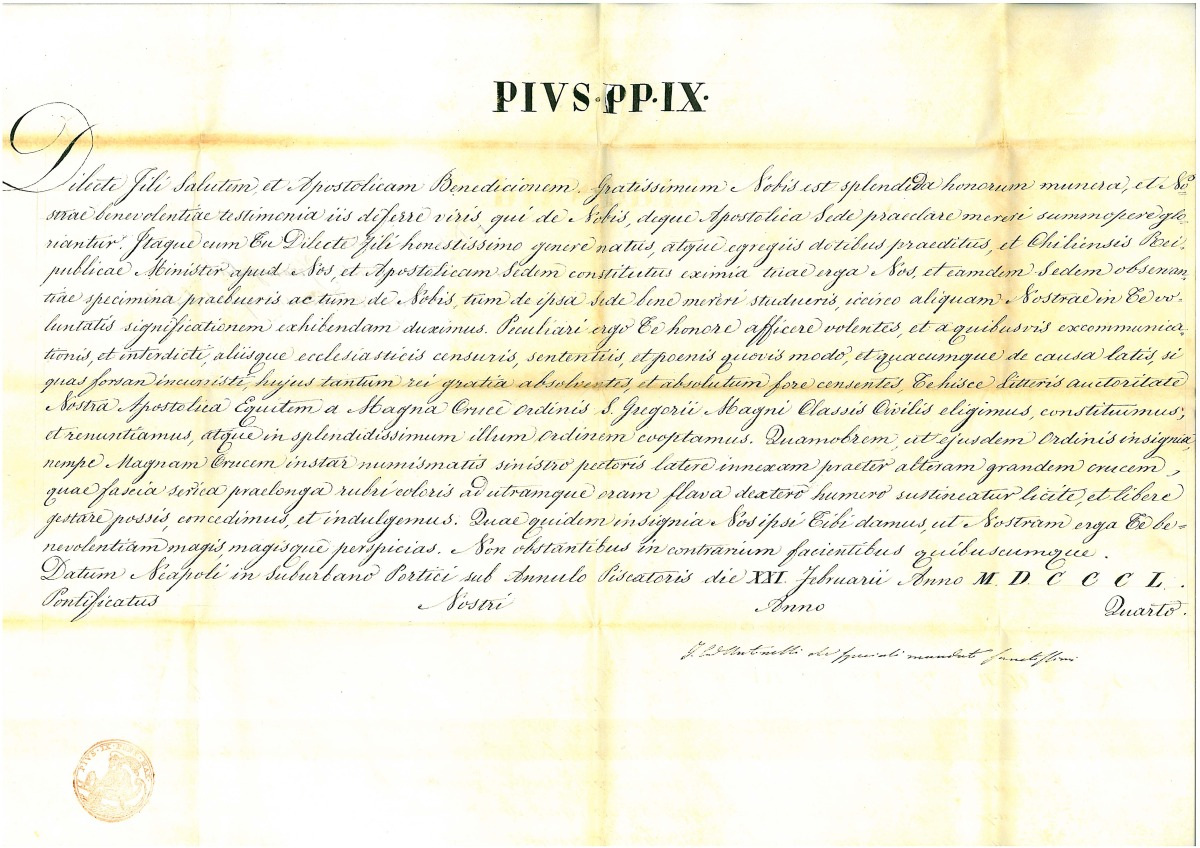 PIVS·PP·IX·
Dilecte Fili Salutem, et Apostolicam Benedicionem. Gratissimum Nobis est splendida honorum munera, et No=
strae benevolentiae testimonia iis deferre viris, qui de Nobis, deque Apostolica Sede praeclare mereri summopere glo=
riantur. Itaque cum Tu Dilecte Fili honestissimo genere natus, atque egregiis dotibus praeditus, et Chiliensis Rei=
publicae Minister apud Nos, et Apostolicam Sedem constitutus eximia tuae erga Nos, et eamdem Sedem observan=
tiae specimina praebueris ac tum de Nobis, tum de ipsa sede bene mereri studueris, iccirco aliquam Nostrae in Te vo=
luntatis significationem exhibendam duximus. Peculiari ergo Te honore afficere volentes, et a quibusvis excommunica=
tionis, et interdicti, aliisque ecclesiasticis censuris, sententiis, et poenis quovis modo, et quacumque de causa latis, si
quas forsan incurristi, hujus tantum rei gratia absolventes, et absolutum fore censentes, Te hisce Litteris auctoritate
Nostra Apostolica Equitem a Magna Cruce Ordinis S. Gregorii Magni Classis Civilis eligimus, constituimus,
et renuntiamus, atque in splendidissimum illum Ordinem cooptamus. Quamobrem, ut ejusdem Ordinis insignia,
nempe Magnam Crucem instar numismatis sinistro pectoris latere innexam praeter alteram grandem crucem,
quae fascia serica praelonga rubri coloris ad utramque oram flava dextero humero sustineatur licite, et libere
gestare possis concedimus, et indulgemus. Quae quidem insignia Nos ipsi Tibi damus, ut Nostram erga Te be=
nevolentiam magis, magisque perspicias. Non obstantibus in contrarium facientibus quibuscumque.
Datum Neapoli in Suburbano Portici sub Annulo Piscatoris die XXI. Februarii Anno M D C C C L.
Pontificatus Nostri Anno Quarto.
Antonelli de speciali mandato sanctissimi
PIVS·IX·PONT·MAX